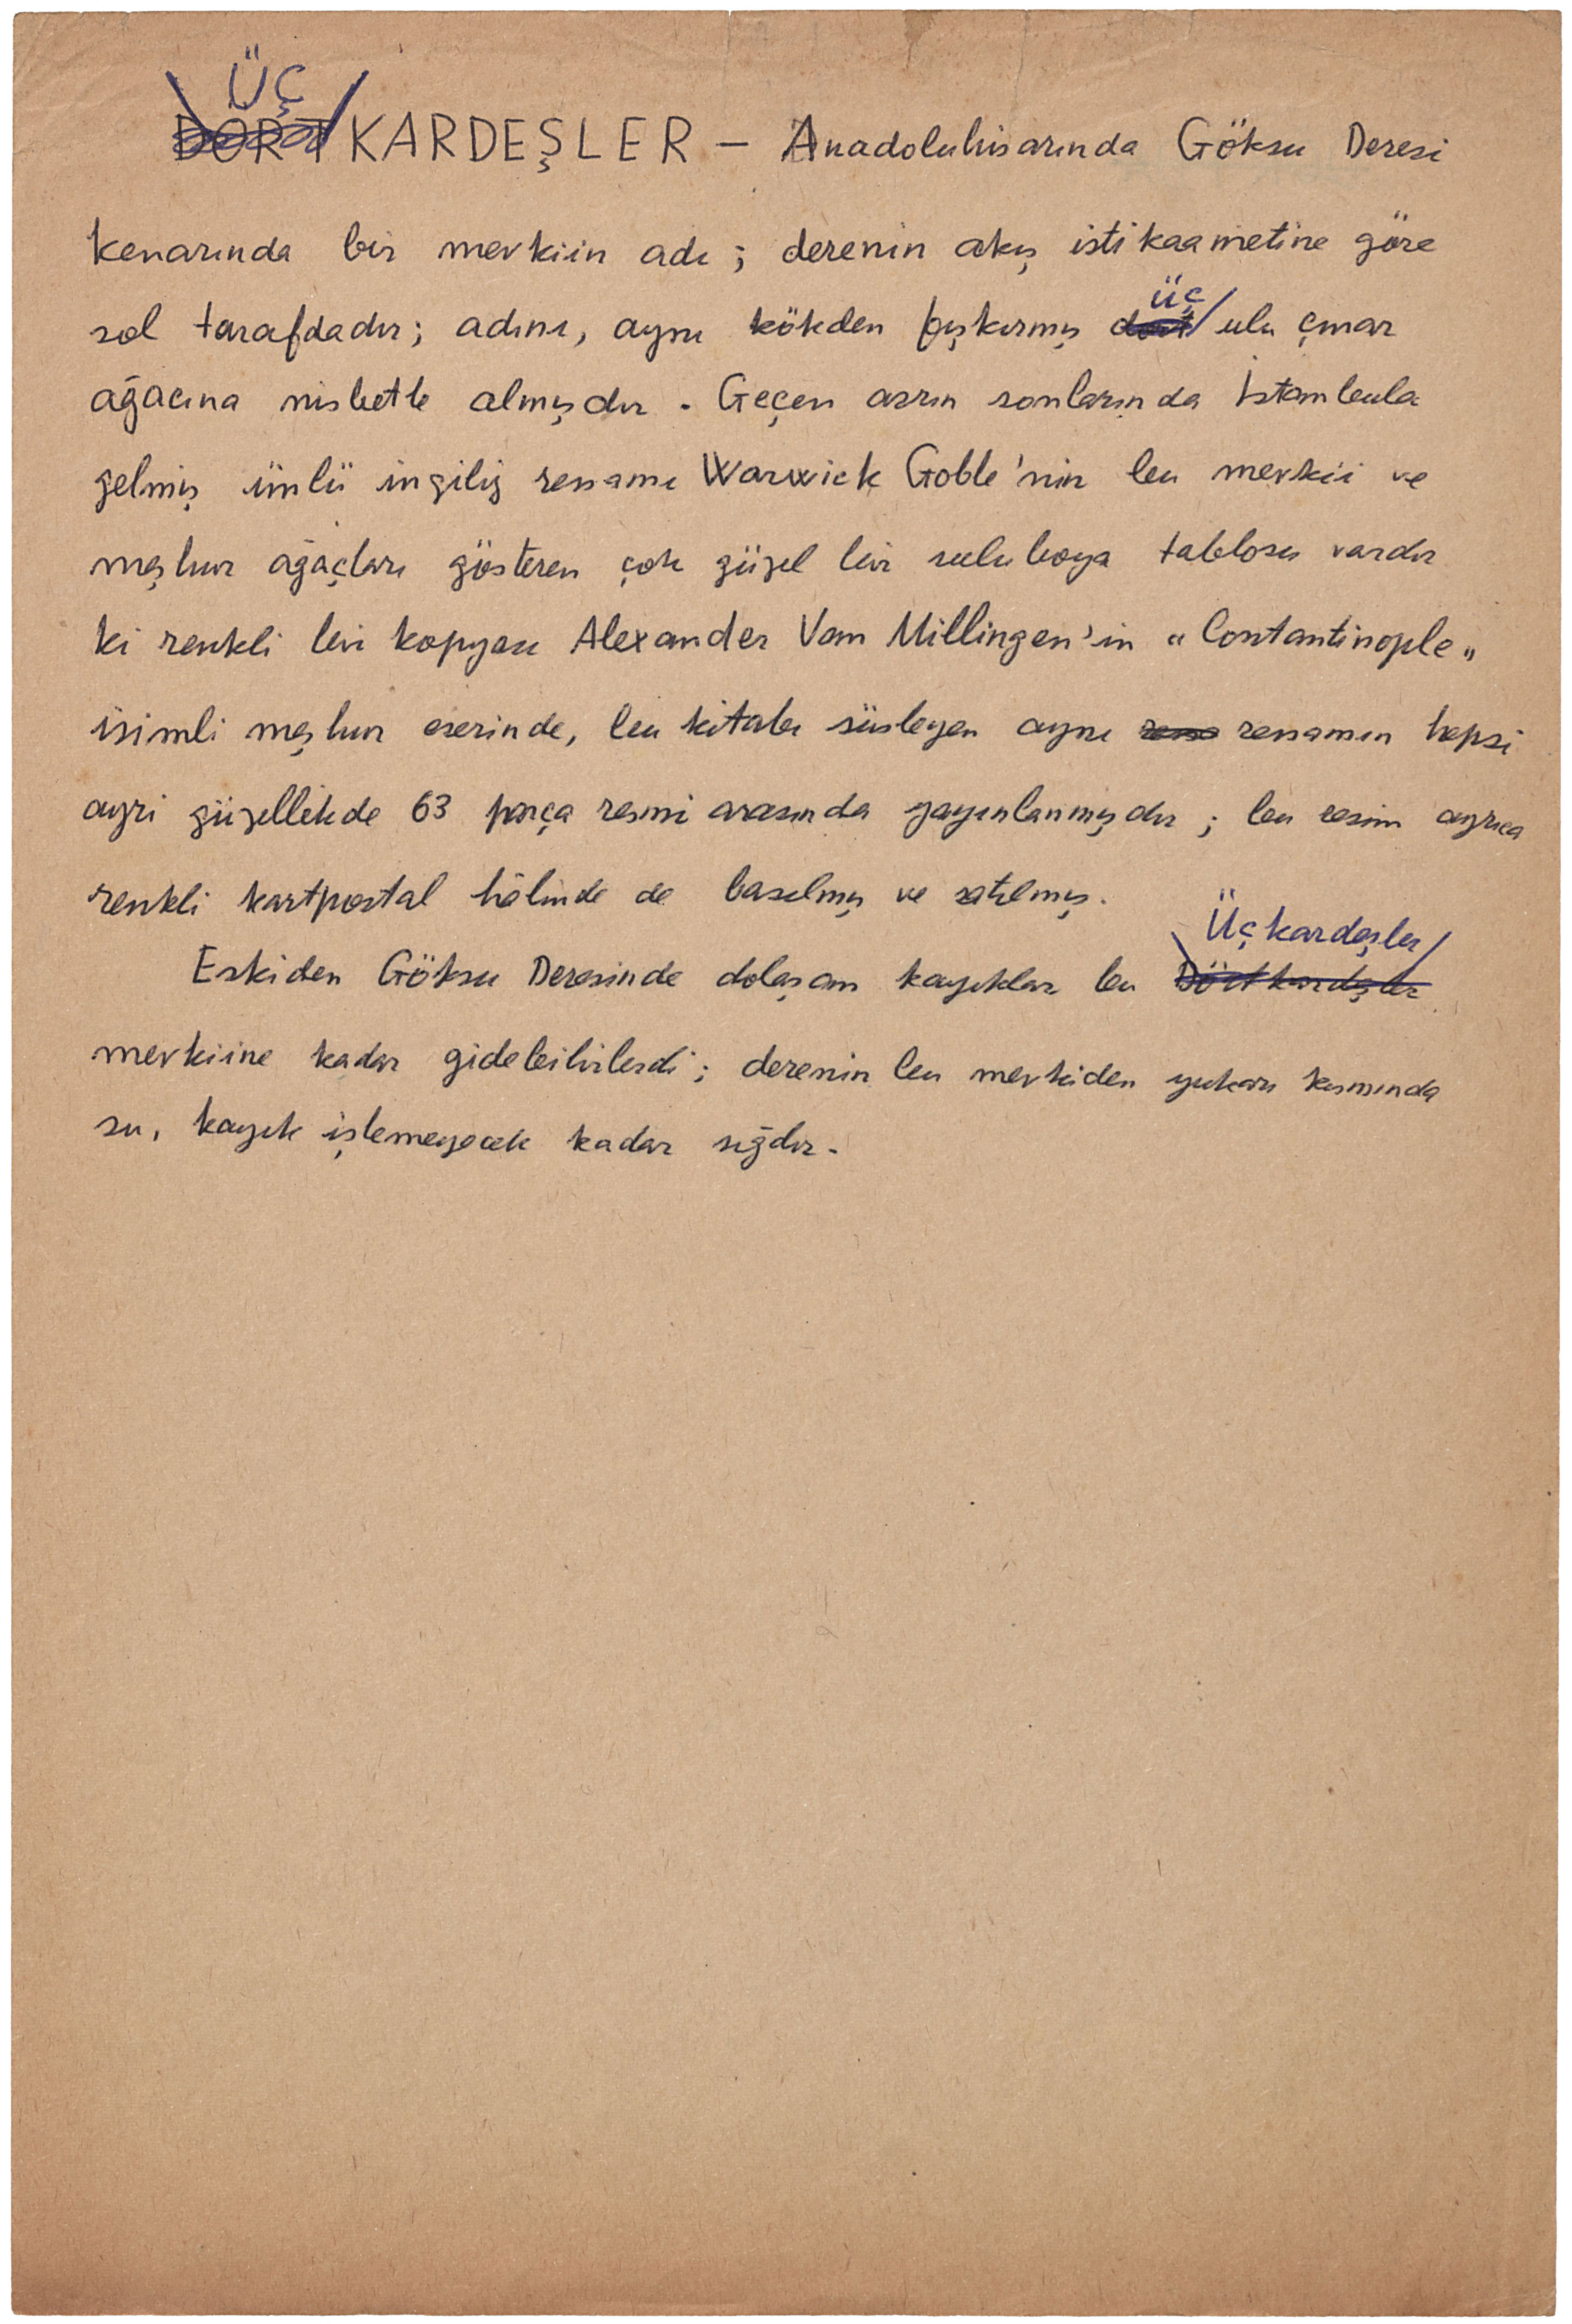 ÜÇ
DÖRTKARDEŞLER – Anadoluhisarında Göksu Deresi
kenarında bir mevkiin adı; derenin akış istikaametine göre
üç
sol tarafdadır; adını, aynı kökden fışkırmış dört ulu çınar
ağacına nisbetle almışdır. Geçen asrın sonlarında İstanbula
gelmiş ünlü ingiliz ressamı Warwick Goble'nin bu mevkii ve
meşhur ağaçları gösteren çok güzel bir sulu boya tablosu vardır
ki renkli bir kopyası Alexander Van Millingen'in "Constantinople"
isimli meşhur eserinde, bu kitabı süsleyen aynı ressamın hepsi
ayrı güzellikde 63 parça resmi arasında yayınlanmışdır; bu resim ayrıca
renkli kartpostal hâlinde de basılmış ve satılmış.
Üçkardeşler
Eskiden Göksu Deresinde dolaşan kayıklar bu Dörtkardeşler
mevkiine kadar gidebilirlerdi; derenin bu mevkiden yukarı kısmında
su, kayık işlemeyecek kadar sığdır.